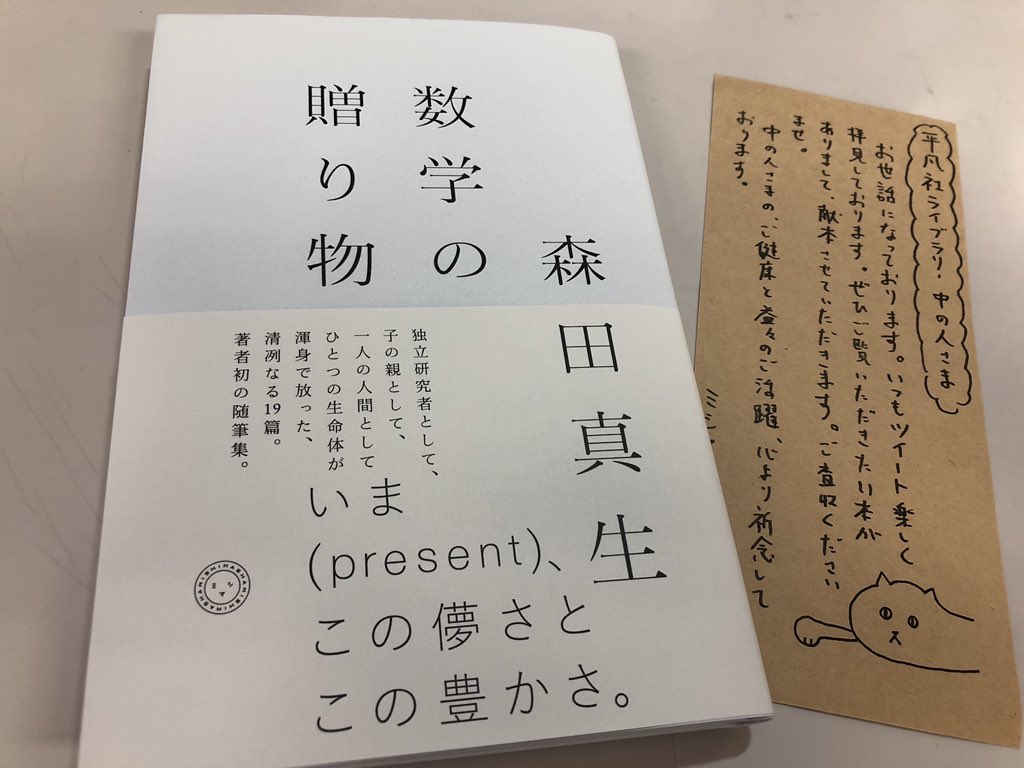 数学の
贈り物
森田真生
独立研究者として、
子の親として、
一人の人間として
ひとつの生命体が
渾身で放った、
清冽なる19篇。
著者初の随筆集。
いま
(present)、
この儚さと
この豊かさ。
平凡社ライブラリー・中の人さま
お世話になっております。いつもツイート楽しく
拝見しております。ぜひご覧いただきたい本が
ありまして、献本させていただきます。ご査収ください
ませ。
中の人さまの、ご健康と益々のご活躍、心より祈念して
おります。